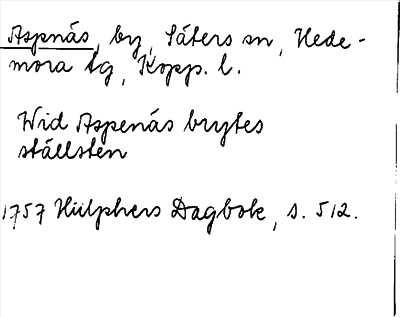 Aspnäs, by, Säters sn, Hede-
mora tg, Kopp. l.
Wid Aspenäs brytes
ställsten
1757 Hülphers Dagbok, s. 512.